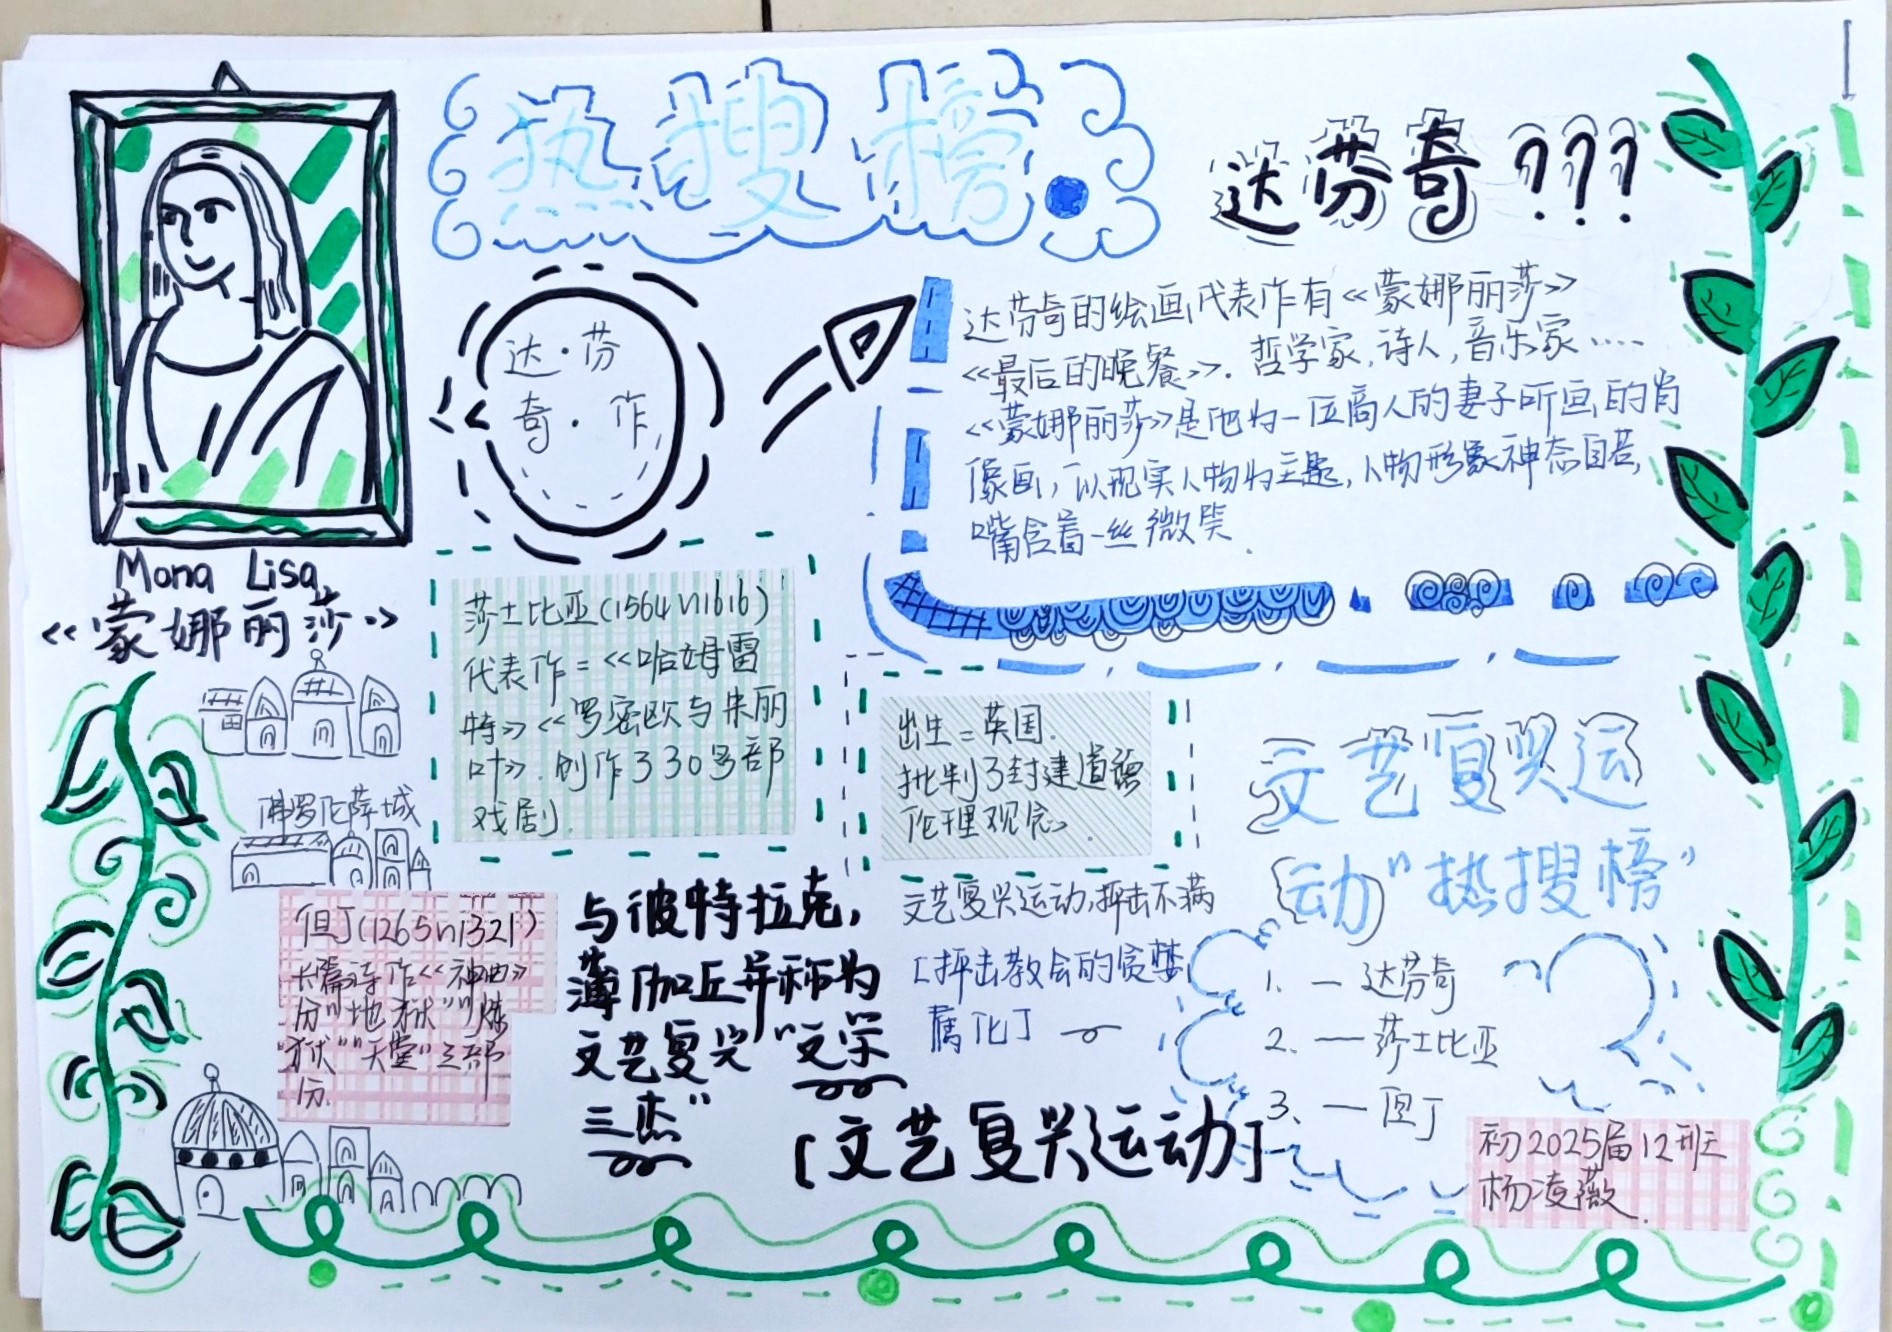 热搜榜
达芬奇???
达·芬
奇·作
达芬奇的绘画代表作有《蒙娜丽莎》
《最后的晚餐》. 哲学家,诗人,音乐家·····
《蒙娜丽莎》是他为一位商人的妻子所画的肖
像画,以现实人物为主题,人物形象神态自若,
嘴含着一丝微笑.
Mona Lisa
《蒙娜丽莎》
莎士比亚(1564~1616)
代表作=《哈姆雷
特》《罗密欧与朱丽
叶》.创作了30多部
戏剧.
出生=英国.
批判了封建道德
伦理观念
文艺复兴运
动"热搜榜"
1. 一达芬奇
2. 一莎士比亚
3. 一但丁
佛罗伦萨城
但丁(1265~1321)
长篇诗作《神曲》
份"地狱""炼
狱""天堂"三部
份.
与彼特拉克,
薄伽丘并称为
文艺复兴"文学
三杰"
文艺复兴运动,抨击不满
[抨击教会的贪婪
腐化]
[文艺复兴运动]
初2025届12班
杨凌薇.